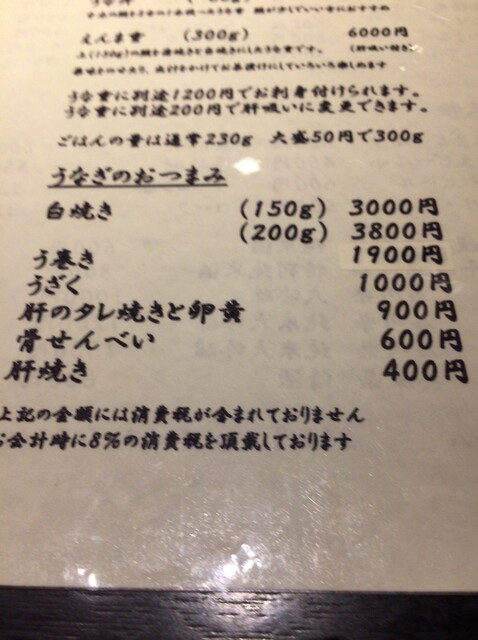 えんま重 (300g) 6000円
うな重に別途1200円でお刺身付けられます。
うな重に別途200円で肝吸いに変更できます。
ごはんの量は通常230g 大盛50円で300g
うなぎのおつまみ
白焼き (150g) 3000円
(200g) 3800円
う巻き 1900円
うざく 1000円
肝のタレ焼きと卵黄 900円
骨せんべい 600円
肝焼き 400円
上記の金額には消費税が含まれておりません
お会計時に8%の消費税を頂戴しております